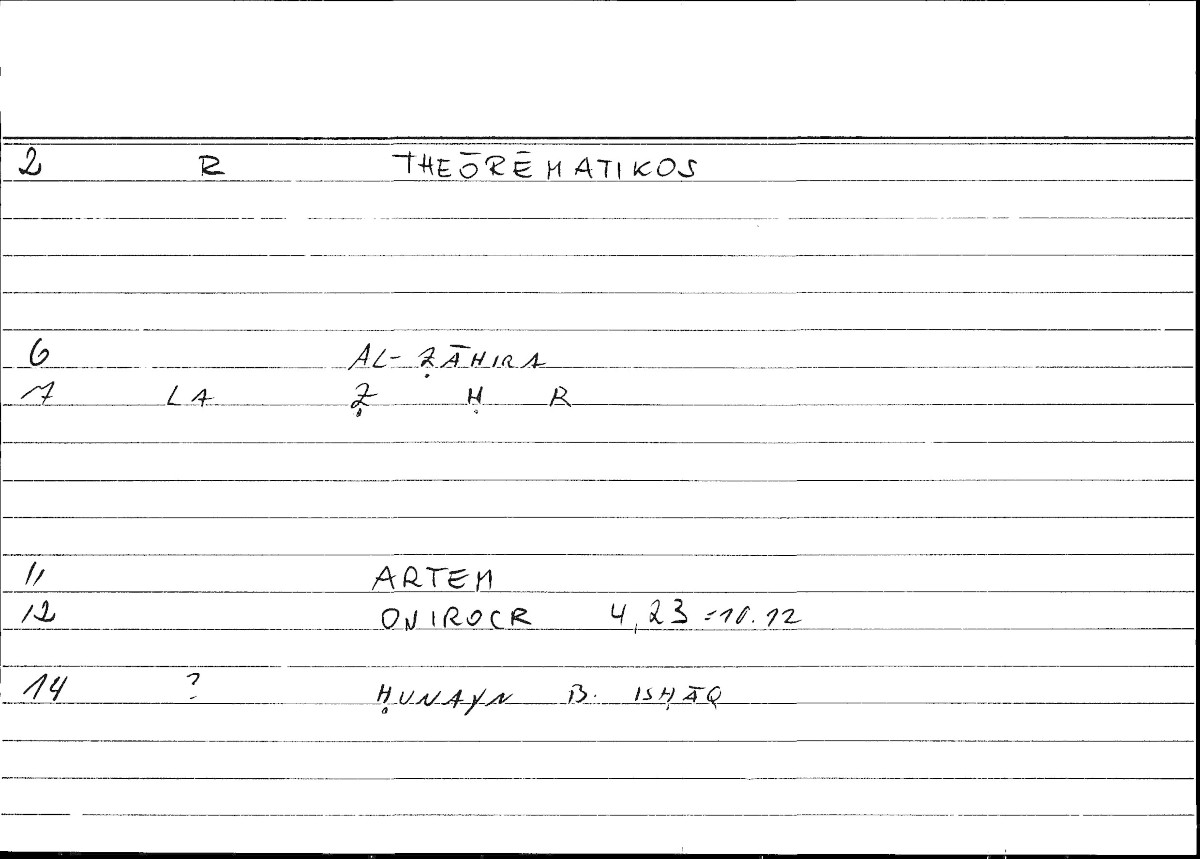 2 R THEŌRĒMATIKOS
6 AL-ẒĀHIRA
7 LA Ẓ Ḥ R
11 ARTEM
12 ONIROCR 4,23=10.12
14 ? ḤUNAYN B. ISḤĀQ